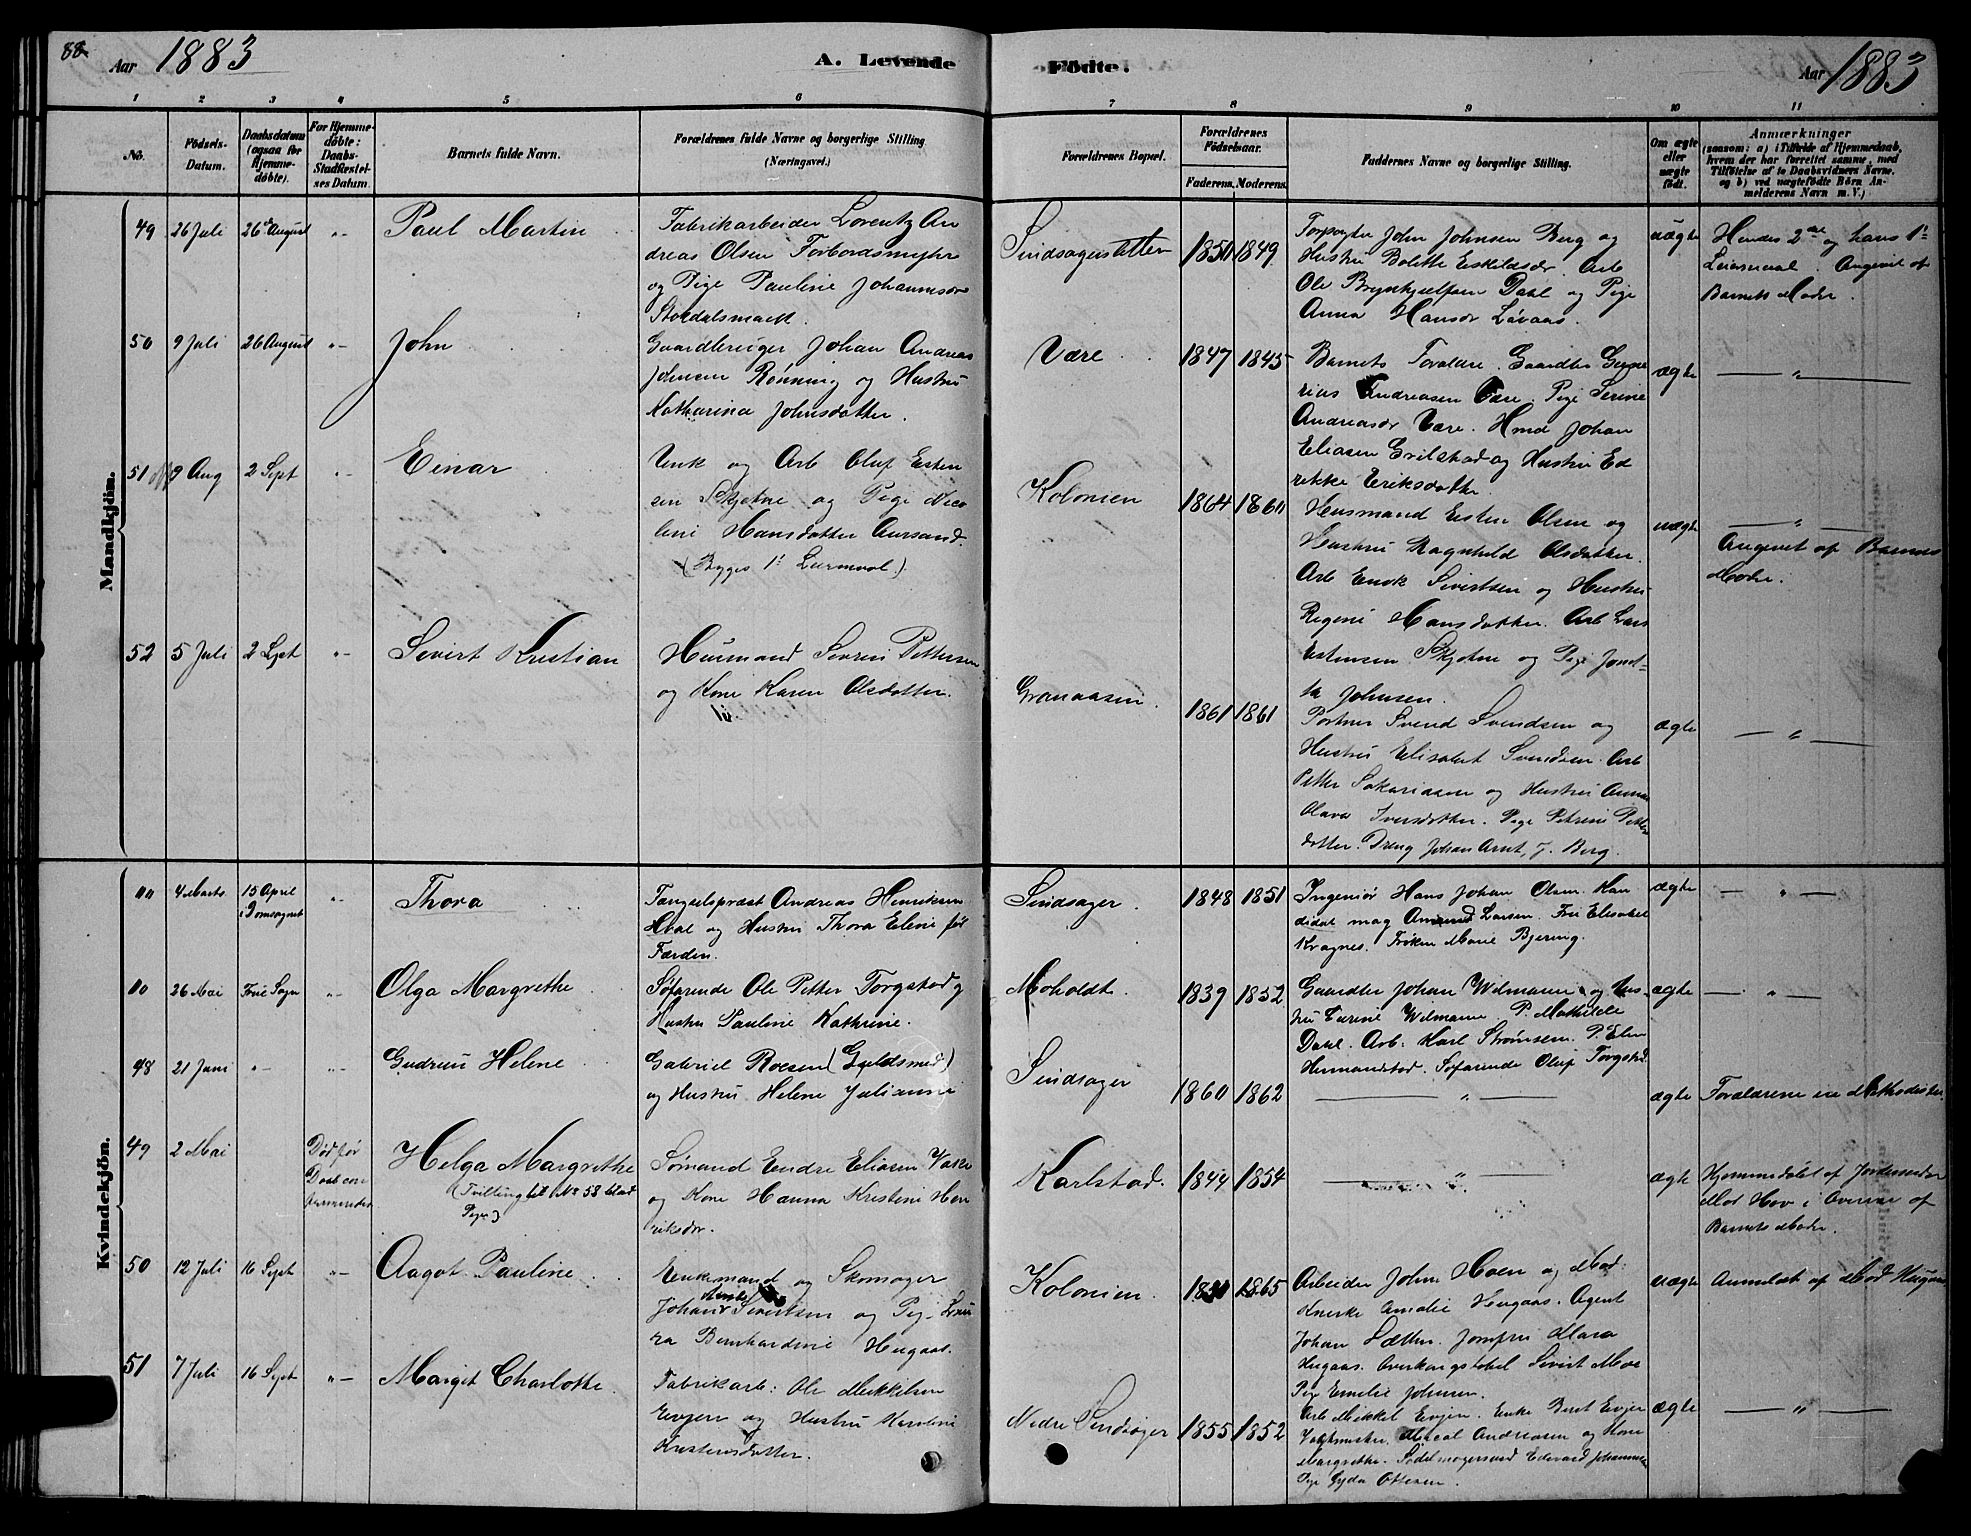 88
Aar 1883
A. Levende
Födte.
Aar 1883
1 2 3 4 5 6 7 8 9 10 11
No.
Födsels-
Datum.
Daabsdatum
(ogsaa for
Hjemme-
döbte).
For Hjemme-
döbte:
Daabs-
Stadfæstel-
ses Datum.
Barnets fulde Navn.
Forældrenes fulde Navne og borgerlige Stilling
(Næringsvei.)
Forældrenes Bopæl.
Forældrenes
Födselsaar.
Faderens. Moderens.
Faddernes Navne og borgerlige Stilling.
Om ægte
eller
uægte
födt.
Anmærkninger
(saasom: a) i Tilfælde af Hjemmedaab,
hvem der har forrettet samme, med
Tilföielse af to Daabsvidners Navne,
og b) ved uægtefödte Börn An-
melderens Navn m. V.)
Mandkjön.
49 26 Juli 26 August "-
Paul Martin
Fabrikarbeider Lorentz An
dreas Olsen Forbordsmyhr
og Pige Pauline Johannesdr
Stordalsmark.
Sindsagerstetten
1851 1849
John Johnsen Berg og
Hustru Bolette Eskildsdr. Arb
Ole Brynhjelfsen Dahl og Pige
Anna Hansdr Løvaas.
uægte
Hendes 2det og hans 1ste
Leiermaal. Angivet af
Barnets Moder.
50 9 Juli 26 August "-
John
Gaardbruger Johan Andreas
Johnsen Rønning og Hustru
Katharina Johnsdatter.
Være.
1847 1845
Barnets Forældre. Gaardbr
Andreasen Være. Pige Serine
Andreasdr Være. Hmd Johan
Eliasen Grilstad og Hustru
Eriksdatter.
ægte
— " —
51 9 Aug 2 Sept "-
Einar
Unk og Arb Oluf Esten
sen Skjetne og Pige Nico
line Hansdatter Aursand.
(Begges 1ste Leiermaal)
Kolonien
1864 1860
Husmand Esten Olsen og
Hustru Ragnhild Olsdatter.
Arb Enok Sivertsen og Hustru
Regine Hansdatter. Arb Lars
Estensen Skjetne og Pige
Johnsen.
uægte
— " —
Angivet af Barnets
Moder.
52 5 Juli 2 Sept "-
Sivert Kristian
Husmand Sevrin Pettersen
og Kone Karen Olsdatter.
Granaasen.
1861 1861
Portner Svend Svendsen og
Hustru Elisabet Svendsen. Arb
Petter Sakariasen og Hustru Anna
Olava Iversdatter. Pige Petrine Petter
datter. Dreng Johan Arnt, J. Berg.
ægte
— " —
Kvindekjön.
4 Marts 15 April
i Domsognet "-
Thora
Fængselspræst Andreas Henriksen
Hval og Hustru Thora Eline før
Færden.
Sindsager.
1848 1851
Ingeniør Hans Johan Olsen. Kan
didat mag Amund Larsen. Fru Elisabet
Kragnes. Frøken Marie Bjering.
ægte
— " —
26 Mai Frue Sogn "-
Olga Margrethe
Søfarende Ole Petter Torgstad og
Hustru Pauline Kathrine.
Moholdt.
1839 1852
Gaardbr Johan Wilmann og Hus-
tru Wilmann. P. Mathilde
Dahl. Arb. Karl Strømsem. P. Elen
Hermanstad. Søfarende Oluf Torgstad.
ægte
— " —
48 21 Juni "- "-
Gudrun Helene
Gabriel Roesen (Guldsmed)
og Hustru Helene Julianne
Sindsager
1860 1862
— " —
ægte
Forældrene ere Methodister.
49 2 Mai
Død før
Daab
Helga Margrethe
(Tvilling til No 58 blad
Piger)
Sømand Endre Eliasen
og Kone Hanna Kristine Hen
riksdr.
Karlstad.
1844 1854
— " —
ægte
Hjemmedøbt af Jordemoder
Hov i Overvær af
Barnets Moder.
50 12 Juli 16 Sept "-
Aagot Pauline
Enkemand og Skomager
Johan Sivertsen og Pige Lau
ra Bernhardine Hugaas.
Kolonien.
1830 1865
Arbeider John Hoen og Mad:
Amalie Hugaas. Agent
Johan Sæther. Jomfru Mara
Hugaas. Sivert Moe
Pige Emelie Johnsen.
uægte
Anmeldt af Mad Hugaas
51 7 Juli 16 Sept "-
Marget Charlotte
Fabrikarb: Ole Mikkelsen
Evjen og Hustru Karoline
Kristensdatter.
Nedre Sindsager
1855 1852
Arb Mikkel Evjen. Enke Beret Evjen
Andreasen og Kone
Margrethe. Sadelmagersvend Edevard Johannesen
Pige Gyda Ottesen.
ægte
— " —